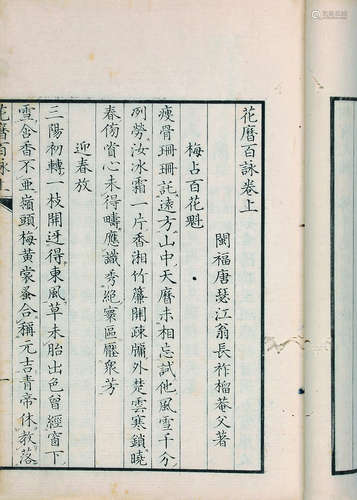 花曆百詠卷上
閩福唐瑟江翁長祚榴菴父著
梅占百花魁
瘦骨珊珊託遠方山中天曆未相忘試他風雪千分
冽勞汝冰霜一片香湘竹簾開疎牖外楚雲寒鎖曉
春傷賞心未得疇應識秀絕寰區壓衆芳
迎春放
三陽初轉一枝開迓得東風草未胎出色曾經窗下
雪含香不亜嶺頭梅黃裳蚤合稱元吉青帝休教落
花曆百詠上